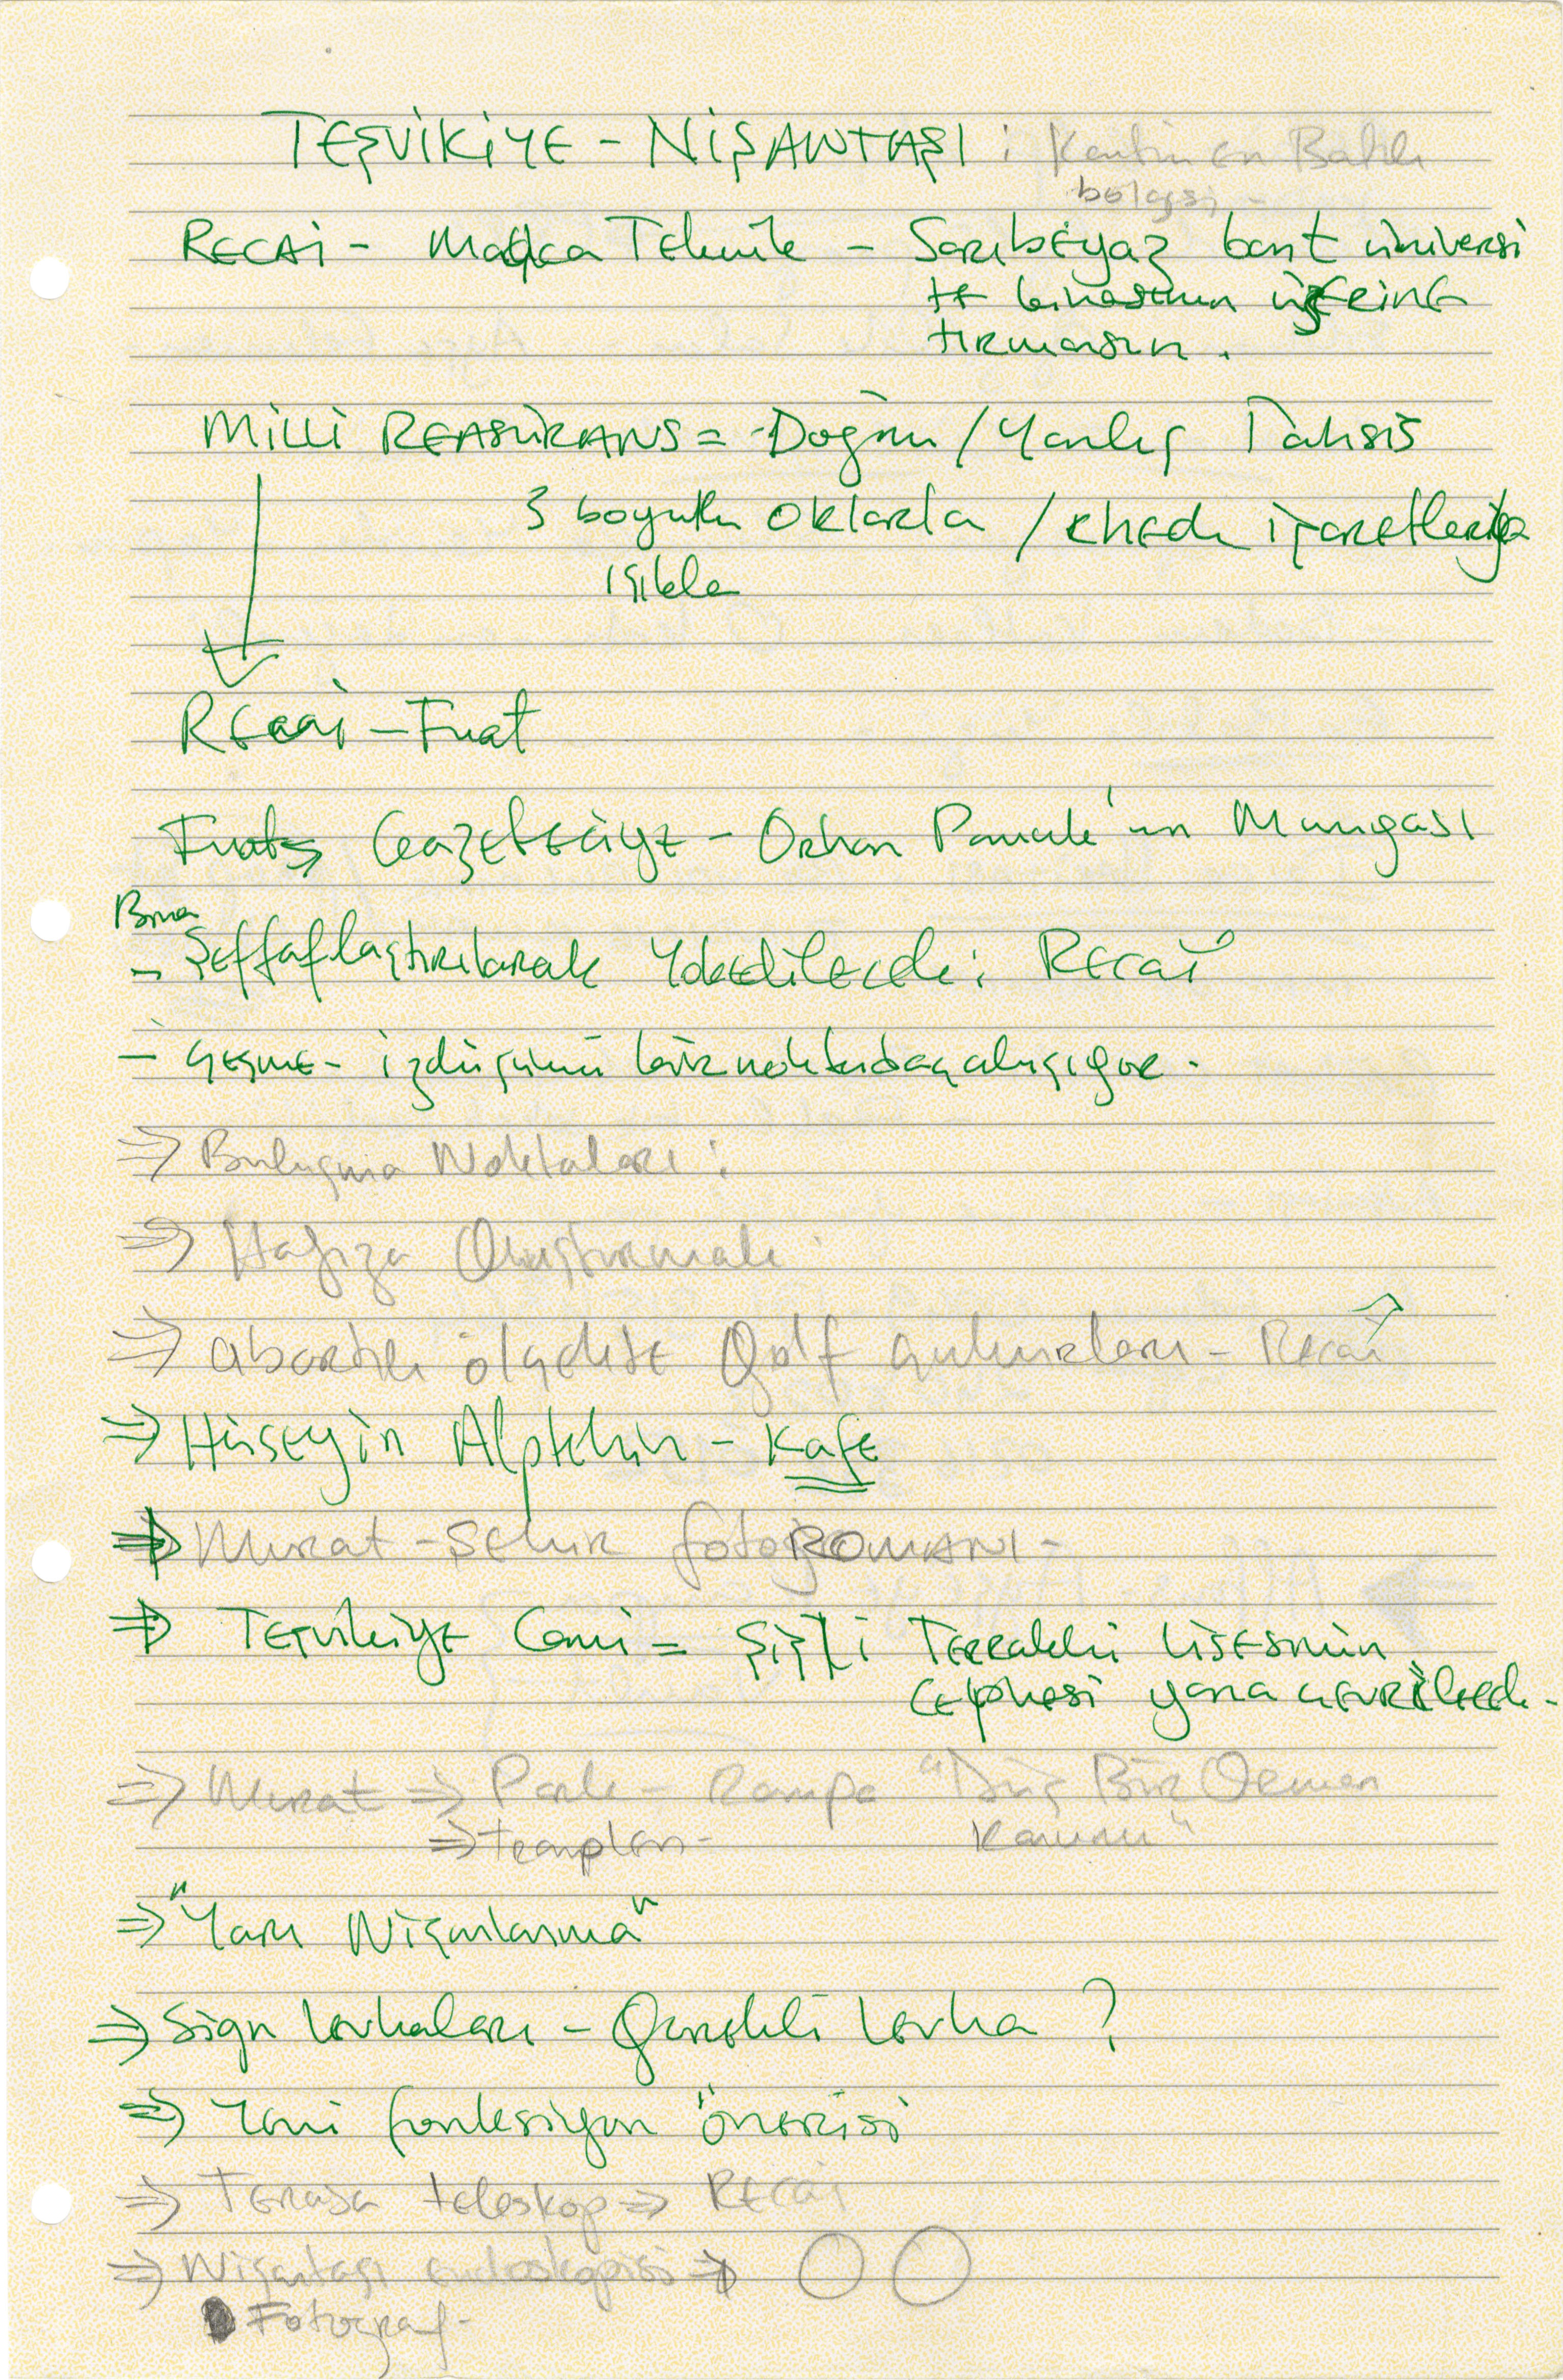 TEŞVİKİYE - NİŞANTAŞI : Kentin en Bakımlı
bölgesi -
RECAİ - Maçka Teknik - Sarıbeyaz bant üniversi
te binasının üzerine
tırmansın .
Milli REASÜRANS = Doğru / Yanlış Tahsis
3 boyutlu oklarla / chech işaretleriyle
ışıkla
RECAİ - Fuat
Fuat Gazeteciye - Orhan Pamuk'un
Bina
- Şeffaflaştırılarak Yokedilecek : RECAİ
- ÇEŞME - izdüşümü bir noktada çakışıyor -
⇒ Buluşma Noktaları :
⇒ Hafıza Oluşturmak
⇒ abartılı ölçekte Golf çukurları - Recai
⇒ Hüseyin Alptekin - Kafe
⇒ Murat - Şehir fotoROMANI -
⇒ Teşvikiye Cami = Şişli Terakki Lisesinin
cephesi yana çevrilecek -
⇒ Murat ⇒ Park - Rampa "Düş Bir Orman
⇒ tramplen - Kanunu"
⇒ "Yarı Nişanlanma"
⇒ Sign levhaları - Gerekli Levha ?
⇒ Yeni fonksiyon önerisi
⇒ Terasa teleskop ⇒ RECAİ
⇒ Nişantaşı endoskopisi ⇒
Fotograf -